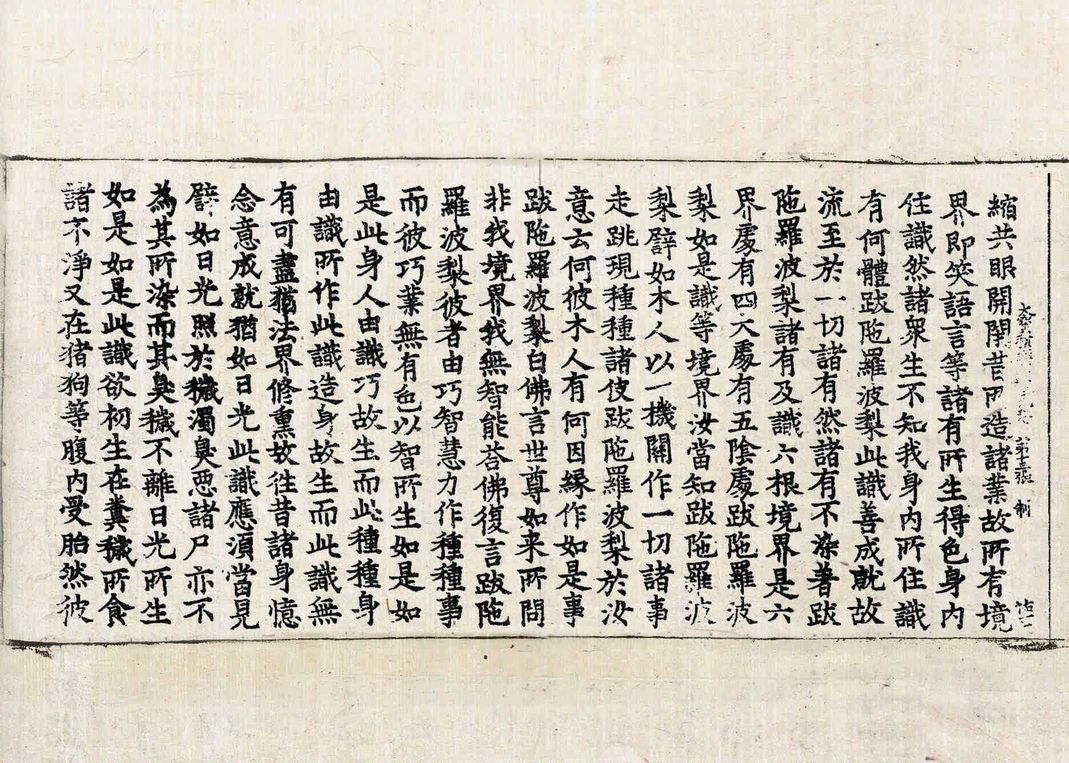 第五張 制
縮共眼開閉苦而造諸業故所有境
界即笑語言等諸有所生得色身内
住識然諸衆生不知我身内所住識
有何體跋陁羅波梨此識善成就故
流至於一切諸有然諸有不染著跋
陁羅波梨諸有及識六根境界是六
界處有四大處有五陰處跋陁羅波
梨如是識等境界汝當知跋陁羅波
梨譬如木人以一機關作一切諸事
走跳現種種諸伎跋陁羅波梨於汝
意云何彼木人有何因縁作如是事
跋陁羅波梨白佛言世尊如来所問
非我境界我無智能荅佛復言跋陁
羅波梨彼者由巧智慧力作種種事
而彼巧業無有色以智所生如是如
是此身人由識巧故生而此種種身
由識所作此識造身故生而此識無
有可盡猶法界修熏故往昔諸身憶
念意成就猶如日光此識應須當見
譬如日光照於穢濁臭惡諸尸亦不
為其所染而其臭穢不離日光所生
如是如是此識欲初生在糞穢所食
諸不淨又在猪狗等腹内受胎然彼